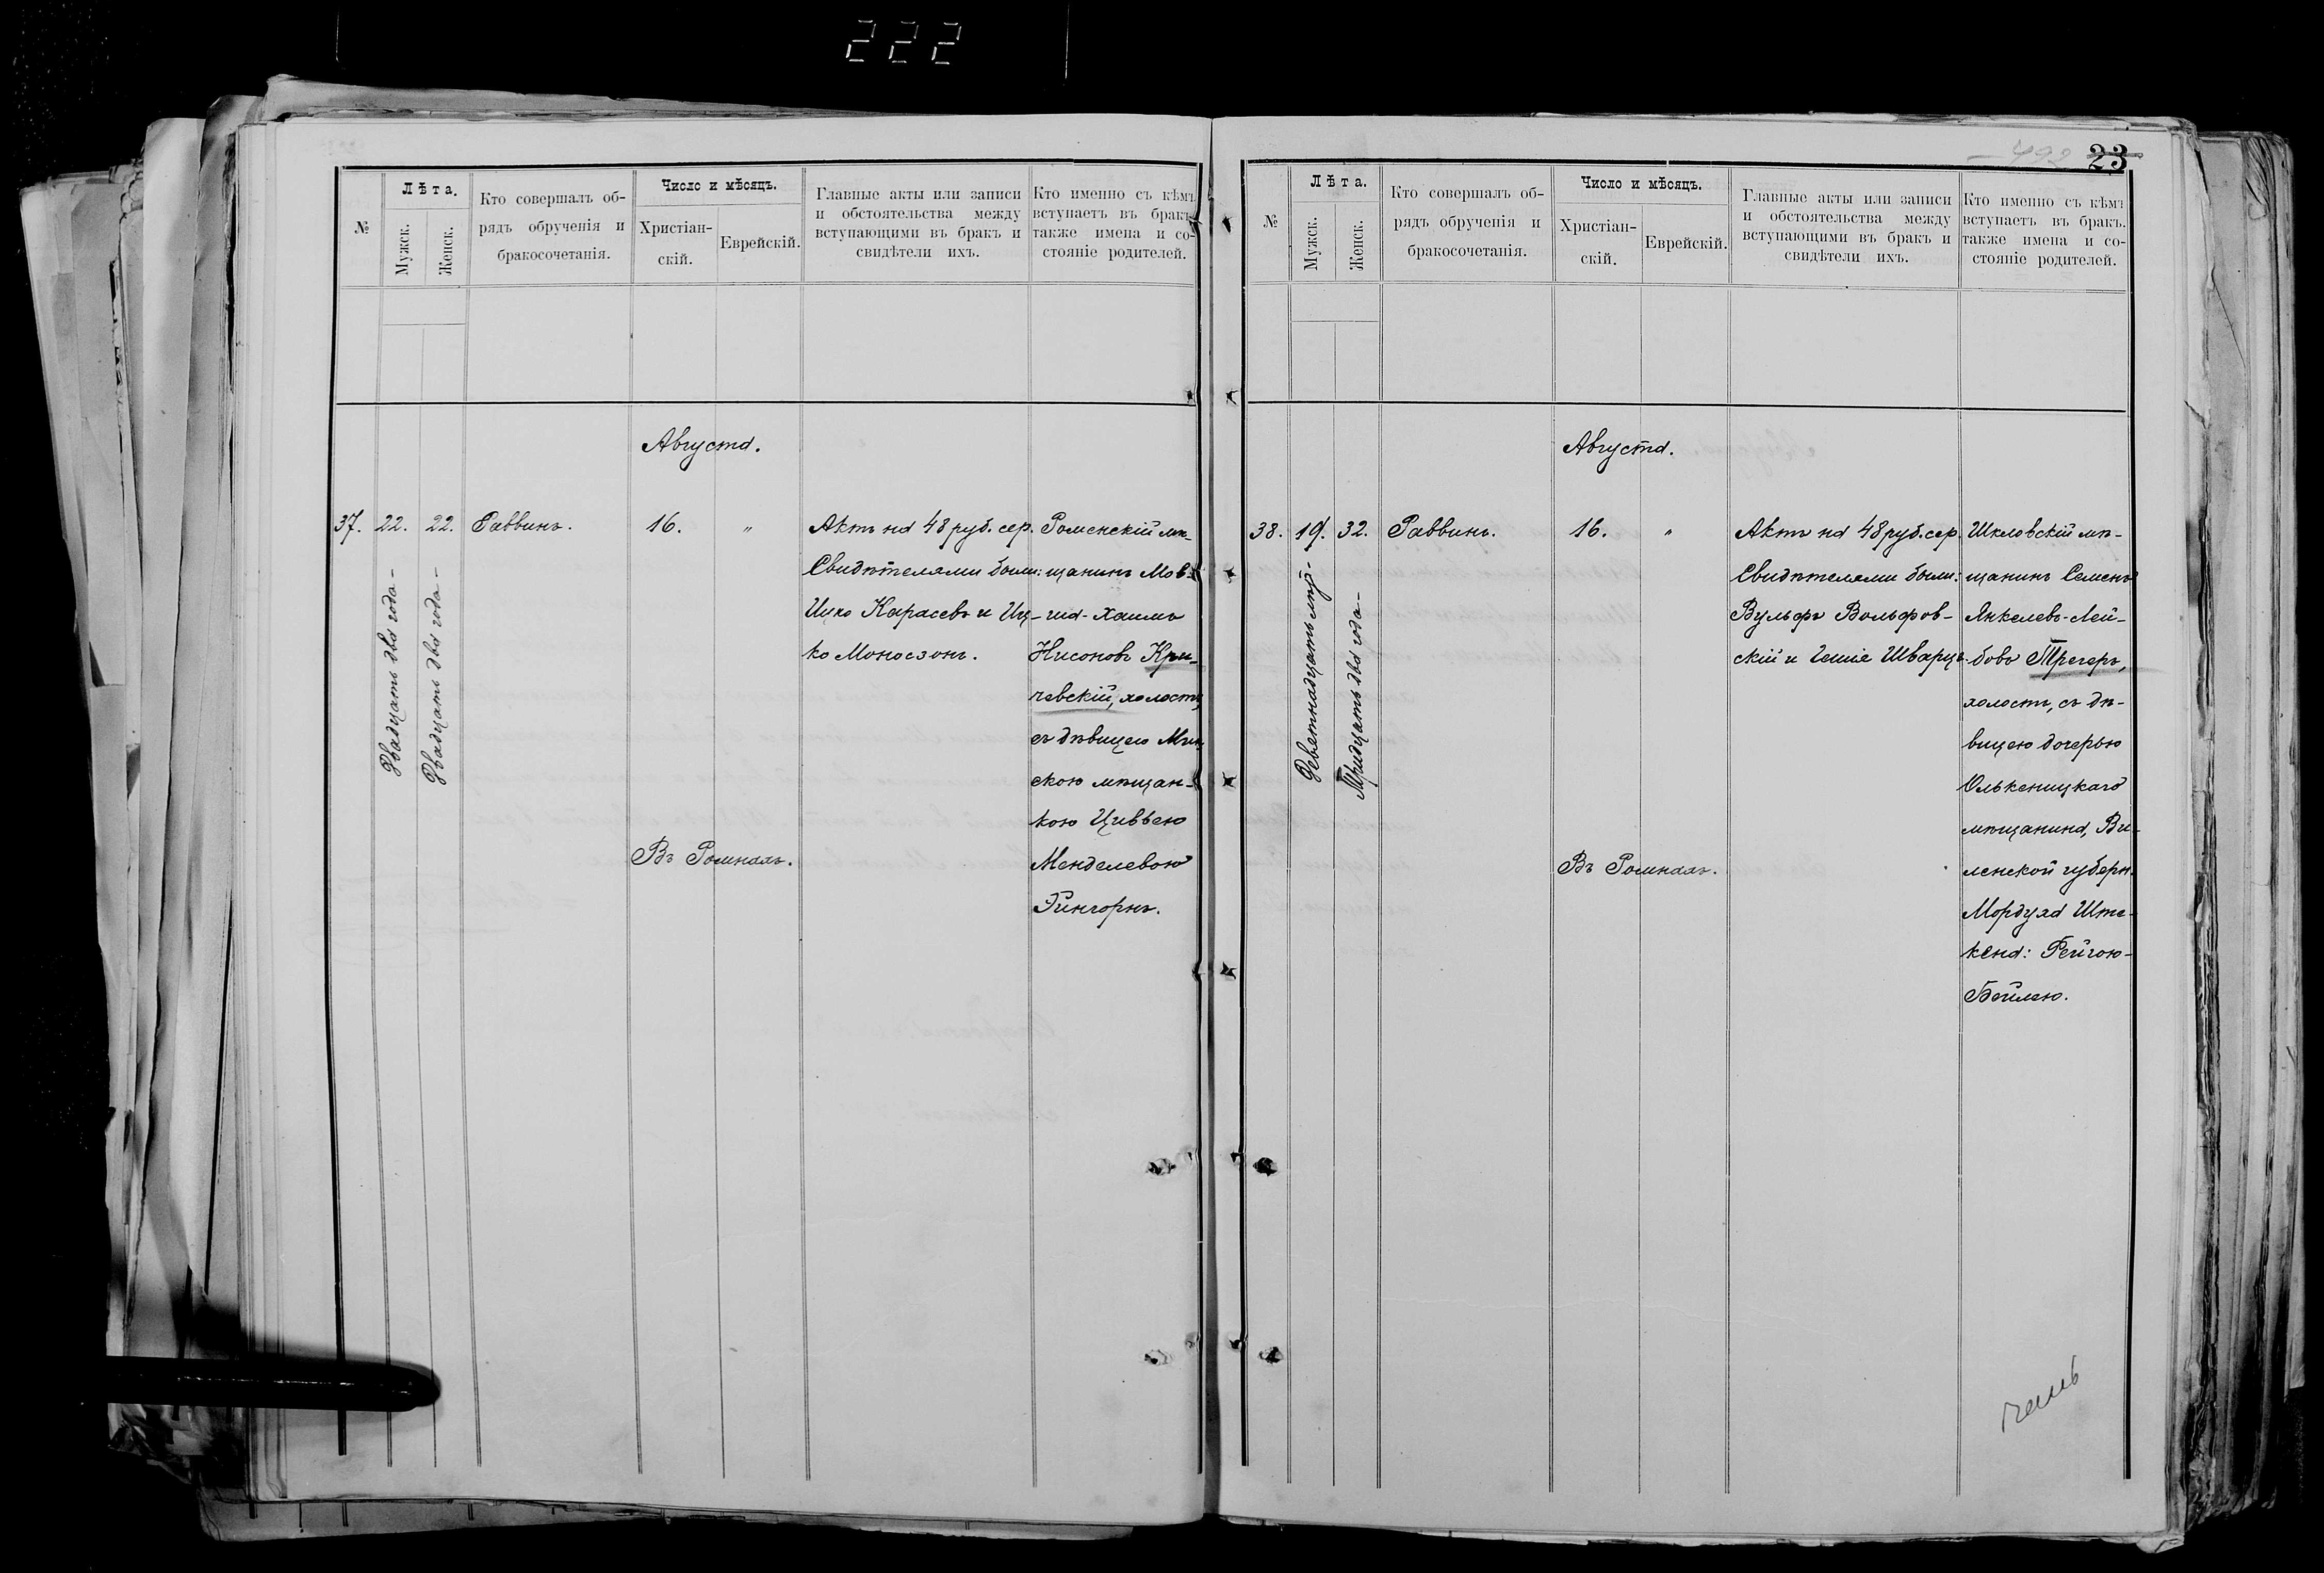 222
№
Лѣта.
Мужск.
Женск.
Кто совершалъ об-
рядъ обрученія и
бракосочетанія.
Число и мѣсяцъ.
Христіан-
скій.
Еврейскій.
Главные акты или записи
и обстоятельства между
вступающими въ бракъ и
свидѣтели ихъ.
Кто именно съ кѣмъ
вступаетъ въ бракъ,
также имена и со-
стояніе родителей.
Августа.
37.
22.
Двадцать два года-
22.
Двадцать два года-
Раввинъ.
16.
"
Въ Ромнахъ.
Актъ на 48 руб. сер.
Свидѣтелями были:
Ицко Карасевъ и Иц-
ко Моносзонъ.
Роменскій мѣ-
щанинъ Мов-
ша-Хаимъ
Нисоновъ Кри-
чевскій, холостъ,
съ дѣвицею Мин-
скою мѣщан-
кою Цивьею
Менделевою
Гингорнъ.
23
№
Лѣта.
Мужск.
Женск.
Кто совершалъ об-
рядъ обрученія и
бракосочетанія.
Число и мѣсяцъ.
Христіан-
скій.
Еврейскій.
Главные акты или записи
и обстоятельства между
вступающими въ бракъ и
свидѣтели ихъ.
Кто именно съ кѣмъ
вступаетъ въ бракъ,
также имена и со-
стояніе родителей.
Августа.
38.
19.
Деветнадцать лѣтъ-
32.
Тридцать два года-
Раввинъ.
16.
"
Въ Ромнахъ.
Актъ на 48 руб. сер.
Свидѣтелями были:
Вульфъ Вольфов-
скій и Шварцъ.
Шкловскій мѣ-
щанинъ Семенъ
Янкелевъ-Лей-
бовъ Трегеръ,
холостъ, съ дѣ-
вицею дочерью
Олькеницкаго
мѣщанина, Ви-
ленской губерн.
Мордуха Ште-
кена: Рейзою-
Бейлею.